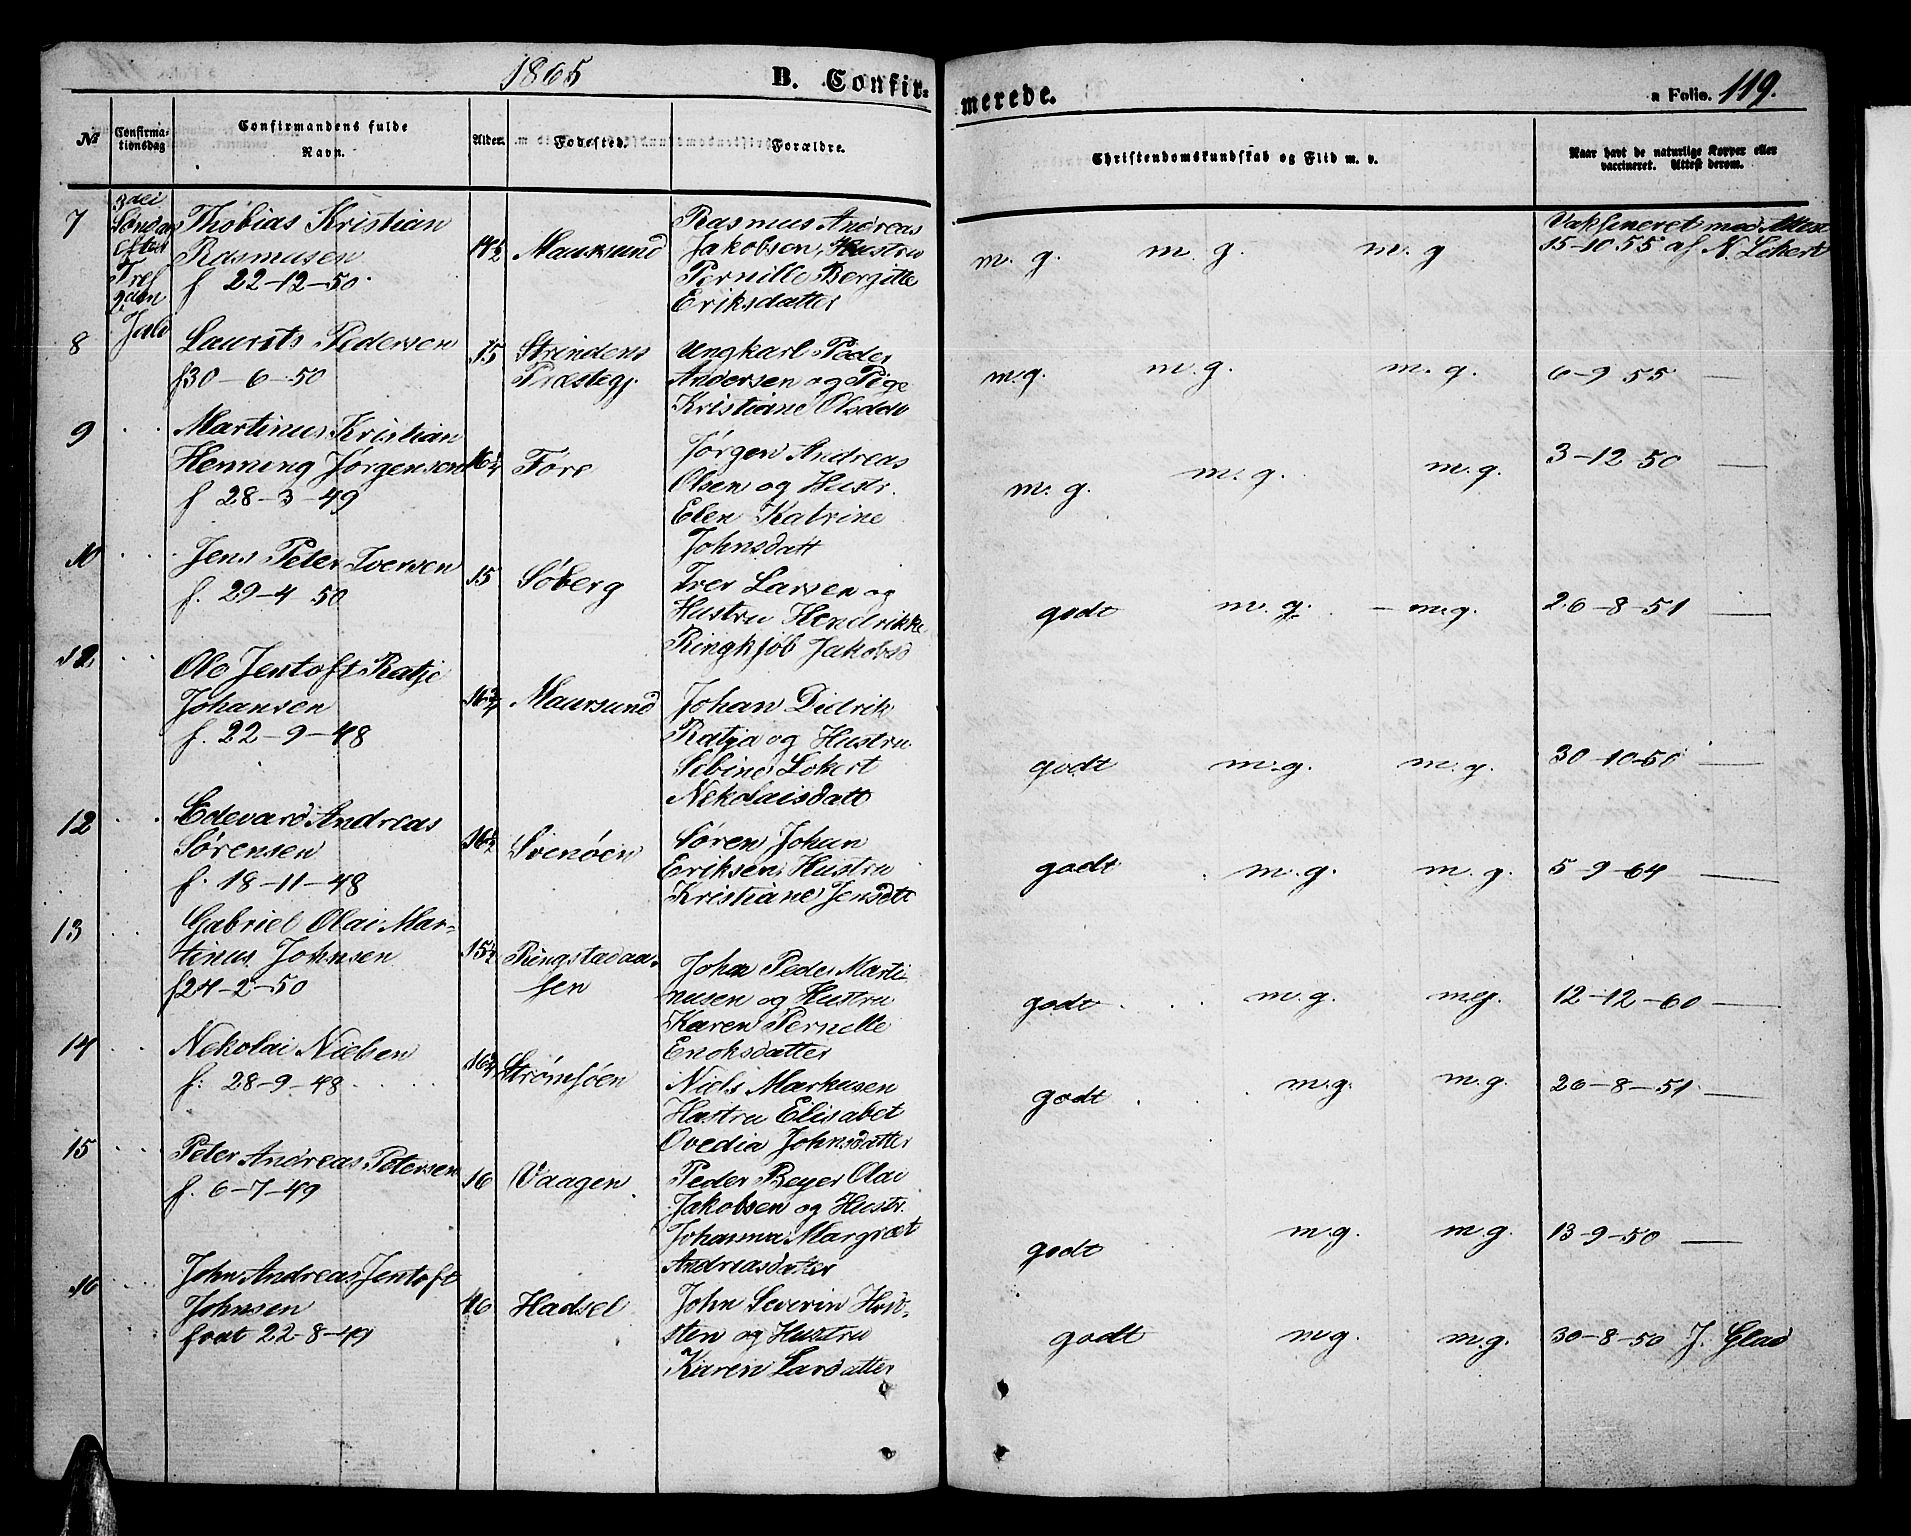 1865 B. Confirmerede. a Folio. 119.
№ Confirmationsdag Confirmandens fulde Navn. Alder. Fødested. Forældre. Christendomskundskab og Flid m. v. Naar havt de naturlige Kopper eller vaccineret. Attest derom.
7 3dei Søndag efter Tref Jald Thobias Kristian Rasmusen f 22-12-50. 14½ Maursund Rasmus Andreas Jakobsen, Hustru Pernille Bergitte Eriksdatter m. g. m. g. m. g Vaksineret med Attest 15-10-55 af N. Lekert
8 Laurits Pedersen f30-6-50 15 Strindens Præstegj. Ungkarl Peder Andersen og Pige Kristiane Olsdatr m.g. m.g. m.g. 6-9 55 —
9 Martinus Kristian Henning Jørgensen f 28-3-49 16¼ Fore Jørgen Andreas Olsen og Hustr. Elen Katrine Johnsdatt m.g. m.g. m.g. 3-12 50 —
10 Jens Peter Iversen f. 29-4 50 15 Søberg Iver Larsen og Hustru Hendrikke Ringkjøb Jakobsd godt m.g. m.g. 26-8-51 —
Ole Jentoft Ratje Johansen f. 22-9-48 16¾ Maursund Johan Didrik Ratja og Hustru Sebine Lokert Nekolaisdatt godt m.g. m.g. 30-10-50 —
12 Edevard Andreas Sørensen f. 18-11-48 16½ Svenøen Søren Johan Eriksen, Hustru Kristiane Jensdtt godt m.g. m.g. 5-9-64 —
13 Gabriel Olai Martinus Johnsen f24-2-50 15¼ Ringstadaasen John Peder Martinusen og Hustru Karen Pernille Enoksdatter godt m.g. m.g. 12-12-60 —
14 Nekolai Nielsen f: 28-9-48 16¾ Strømsøen Niels Markusen Hustru Elisabet Ovedia Johnsdatter godt m.g. m.g. 26-8-51 —
15 Peter Andreas Petersen f. 6-7-49 16 Vaagen Peder Beyer Olai Jakobsen og Hustr. Johanna Margræt Andreasdater godt m.g. m.g. 13-9-50 —
16 John Andreas Jentoft Johnsen født 22-8-49 16 Hadsel John Severin og Hustru Karen Larsdatter godt m.g. m.g. 30-8-50 J. Glad